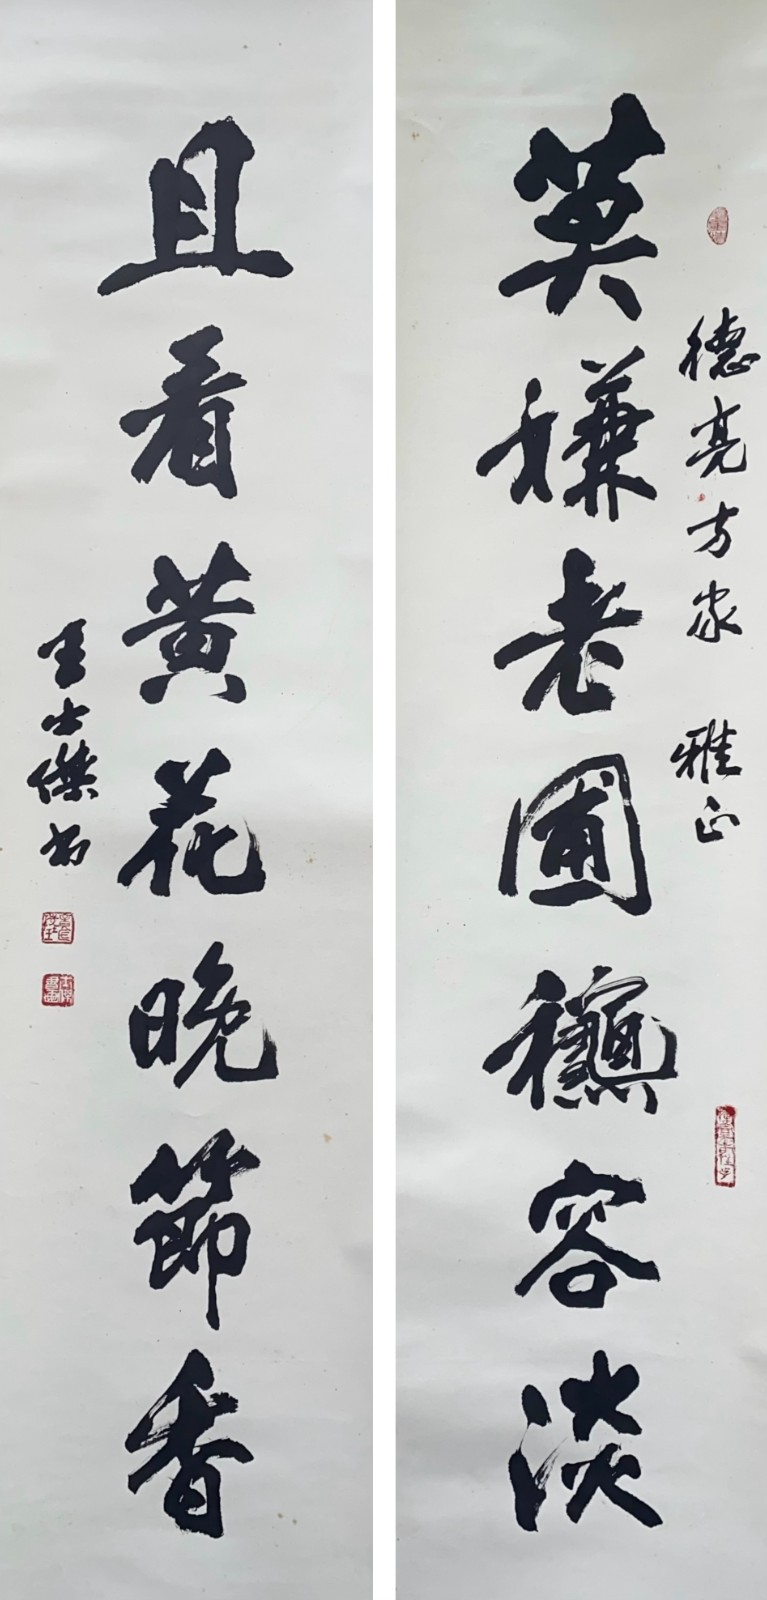 德亮方家 雅正
莫嫌老圃龝容淡
且看黄花晚節香
王士傑書